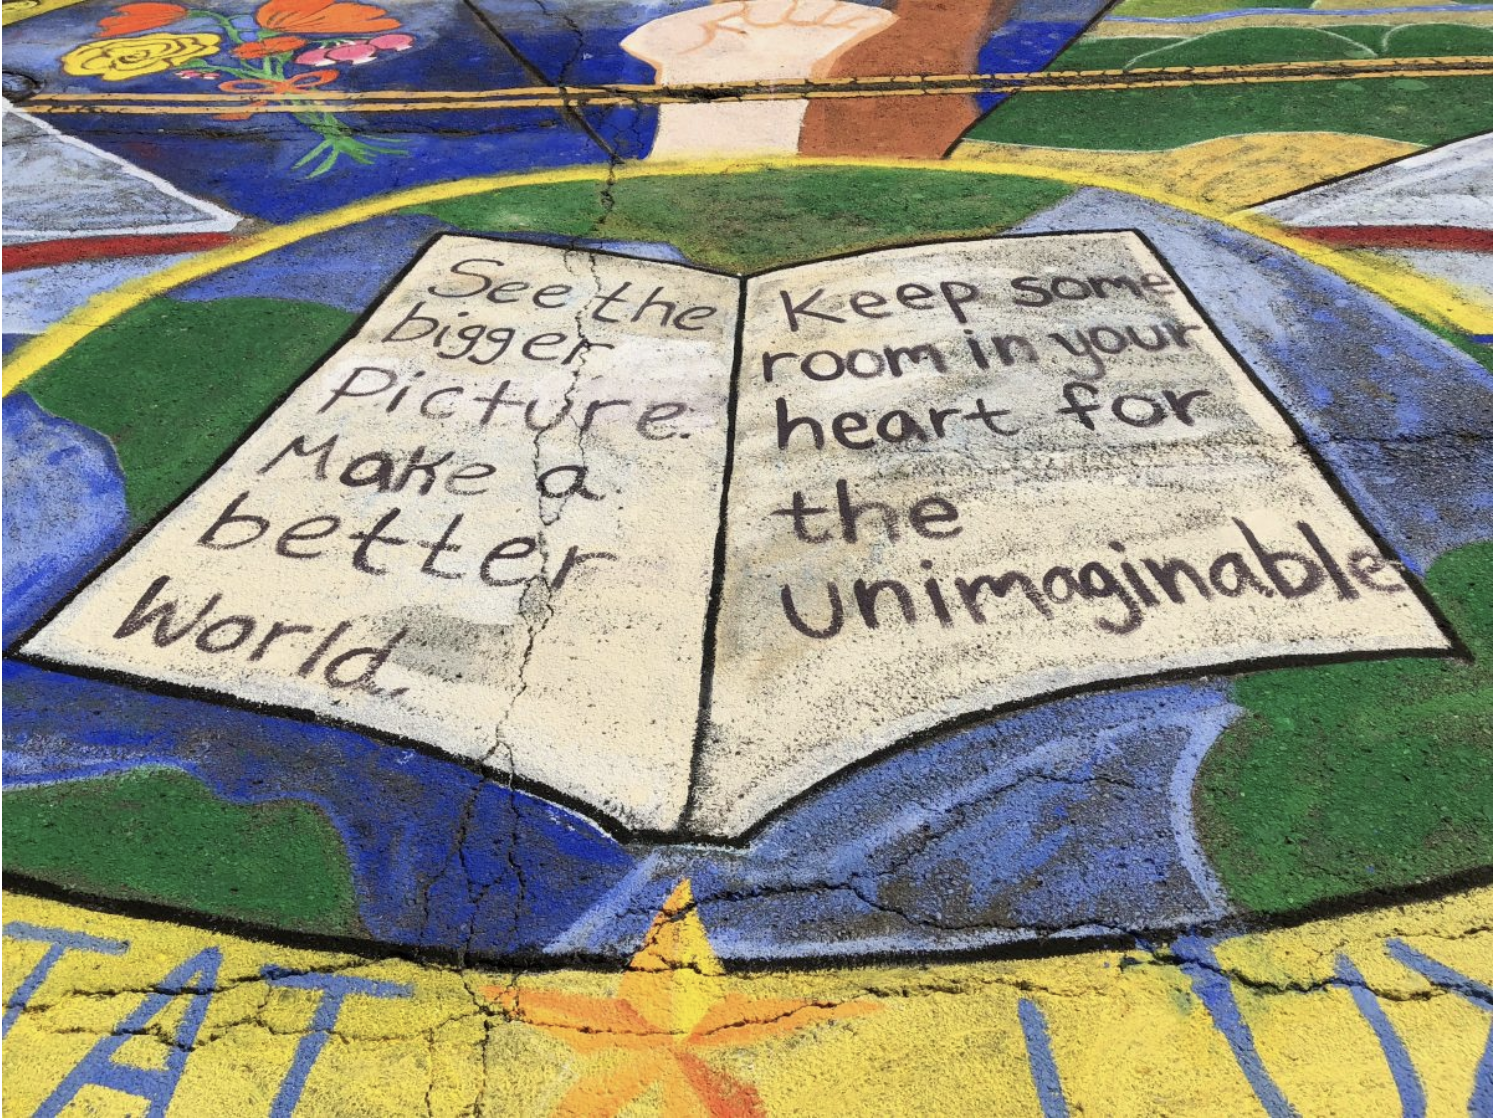 See the
bigger
Picture.
Make a
better
World.
Keep some
room in your
heart for
the
unimaginable
TAT